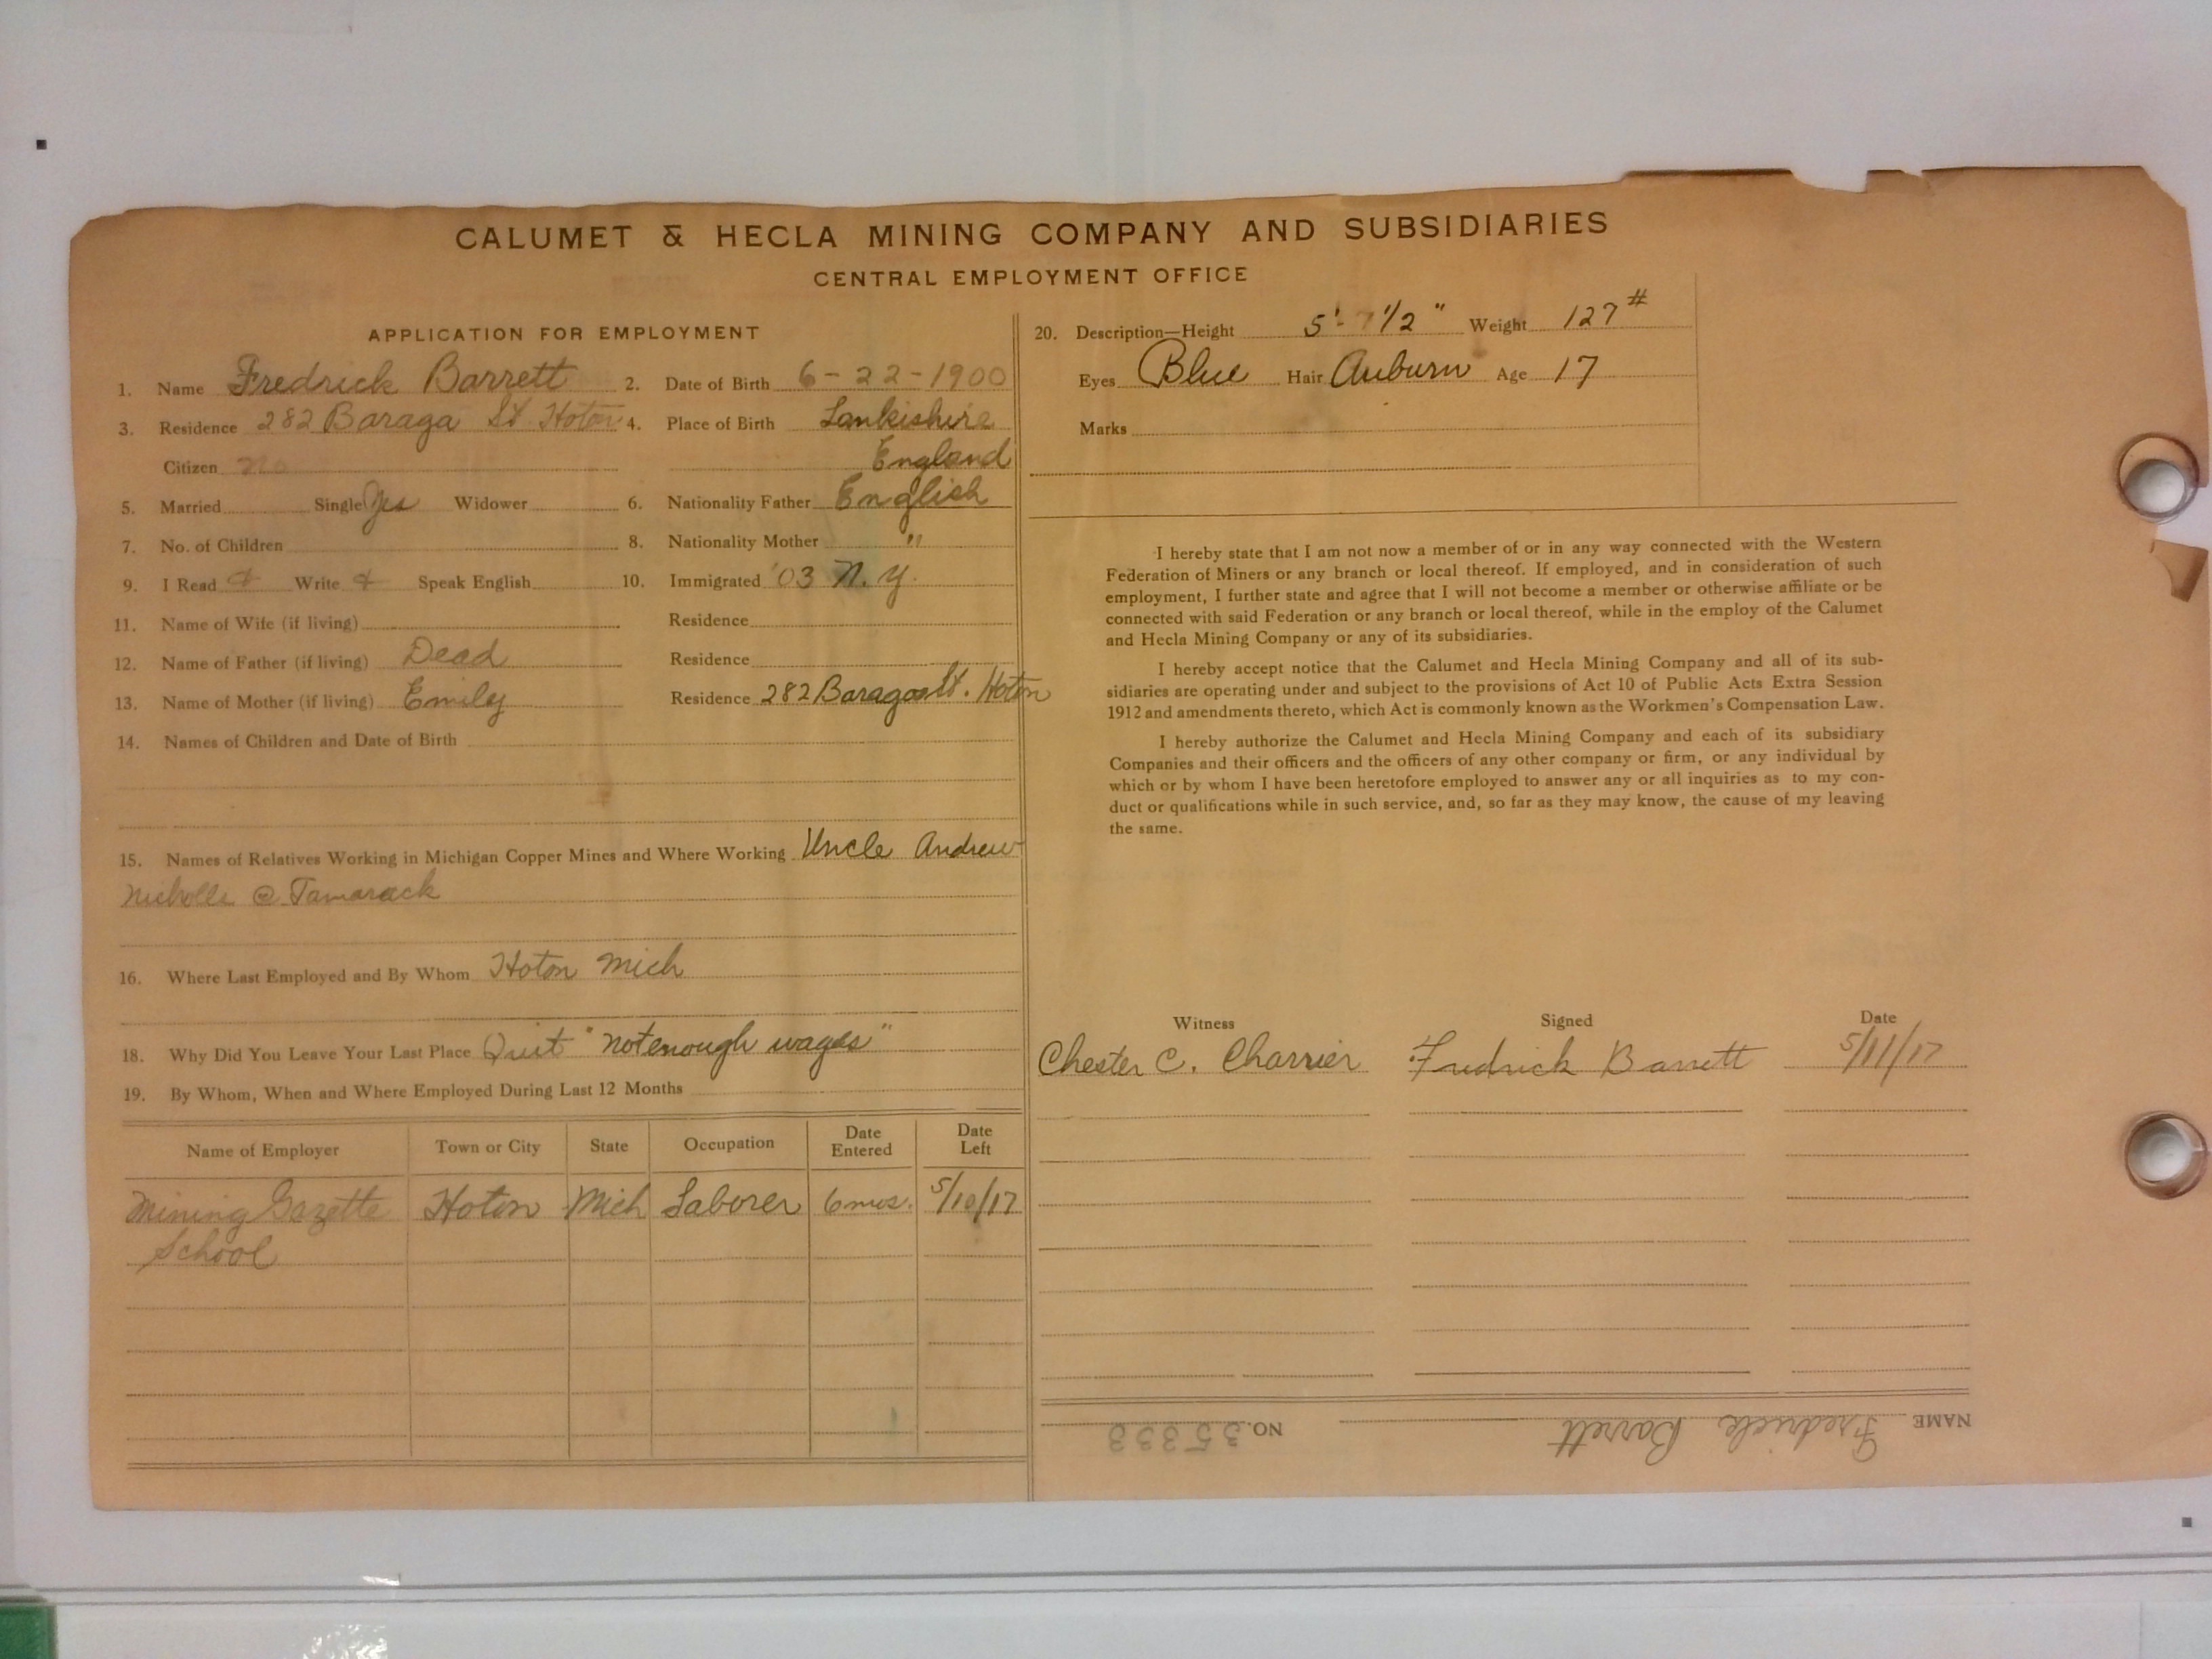 CALUMET & HECLA MINING COMPANY AND SUBSIDIARIES
CENTRAL EMPLOYMENT OFFICE
APPLICATION FOR EMPLOYMENT
1. Name Fredrick Barrett 2. Date of Birth 6-22-1900
3. Residence 282 Baraga St Hoton 4. Place of Birth Lankishire
Citizen no England
5. Married Single Yes Widower 6. Nationality Father English
7. No. of Children 8. Nationality Mother "
9. I Read & Write & Speak English 10. Immigrated '03 N.Y.
11. Name of Wife (if living) Residence
12. Name of Father (if living) Dead Residence
13. Name of Mother (if living) Emily Residence 282 Baraga St. Hoton
14. Names of Children and Date of Birth
15. Names of Relatives Working in Michigan Copper Mines and Where Working Uncle Andrew
Nicholls @ Tamarack
16. Where Last Employed and By Whom Hoton Mich
18. Why Did You Leave Your Last Place Quit "not enough wages"
19. By Whom, When and Where Employed During Last 12 Months
Name of Employer Town or City State Occupation Date Entered Date Left
Mining Gazette Hoton Mich Laborer 6 mos. 5/10/17
School
20. Description—Height 5'-7 1/2" Weight 127#
Eyes Blue Hair Auburn Age 17
Marks
I hereby state that I am not now a member of or in any way connected with the Western
Federation of Miners or any branch or local thereof. If employed, and in consideration of such
employment, I further state and agree that I will not become a member or otherwise affiliate or be
connected with said Federation or any branch or local thereof, while in the employ of the Calumet
and Hecla Mining Company or any of its subsidiaries.
I hereby accept notice that the Calumet and Hecla Mining Company and all of its sub-
sidiaries are operating under and subject to the provisions of Act 10 of Public Acts Extra Session
1912 and amendments thereto, which Act is commonly known as the Workmen's Compensation Law.
I hereby authorize the Calumet and Hecla Mining Company and each of its subsidiary
Companies and their officers and the officers of any other company or firm, or any individual by
which or by whom I have been heretofore employed to answer any or all inquiries as to my con-
duct or qualifications while in such service, and, so far as they may know, the cause of my leaving
the same.
Witness Signed Date
Chester C. Charrier Fredrick Barrett 5/11/17
NAME Fredrick Barrett NO. 35333